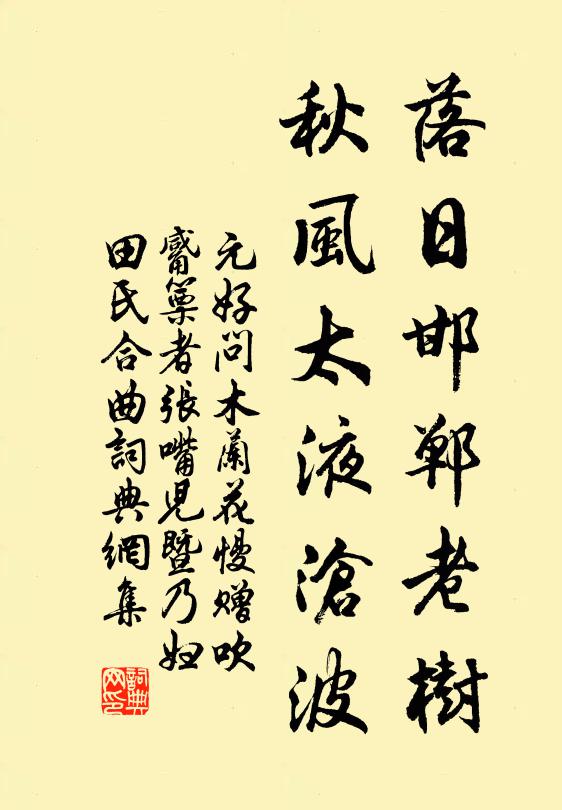 落日邯鄲老樹
秋風太液滄波
元好問木蘭花慢赠吹
觱篥者張嘴兒暨乃妇
田氏合曲詞典網集
詞典網印